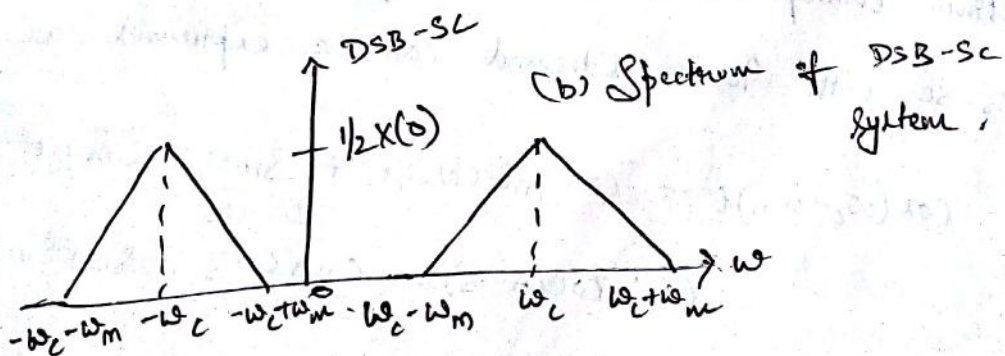 DSB-SC
(b) Spectrum of DSB-SC
system.
1/2 X(0)
-ωc-ωm -ωc -ωc+ωm 0 -ωc-ωm ωc ωc+ωm ω